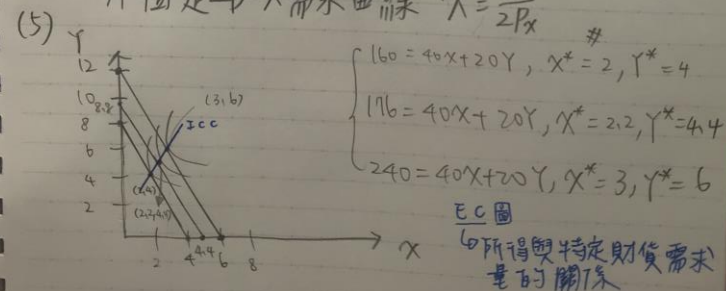 X = / 2Px
(5) Y
#
12
10
8.8
8
6
4
2
(3,6)
ICC
(2,4)
(2.2,4.4)
2 4 4.4 6 8 X
160 = 40X + 20Y, X* = 2, Y* = 4
176 = 40X + 20Y, X* = 2.2, Y* = 4.4
240 = 40X + 20Y, X* = 3, Y* = 6
EC圖
所得與特定財貨需求
量的關係